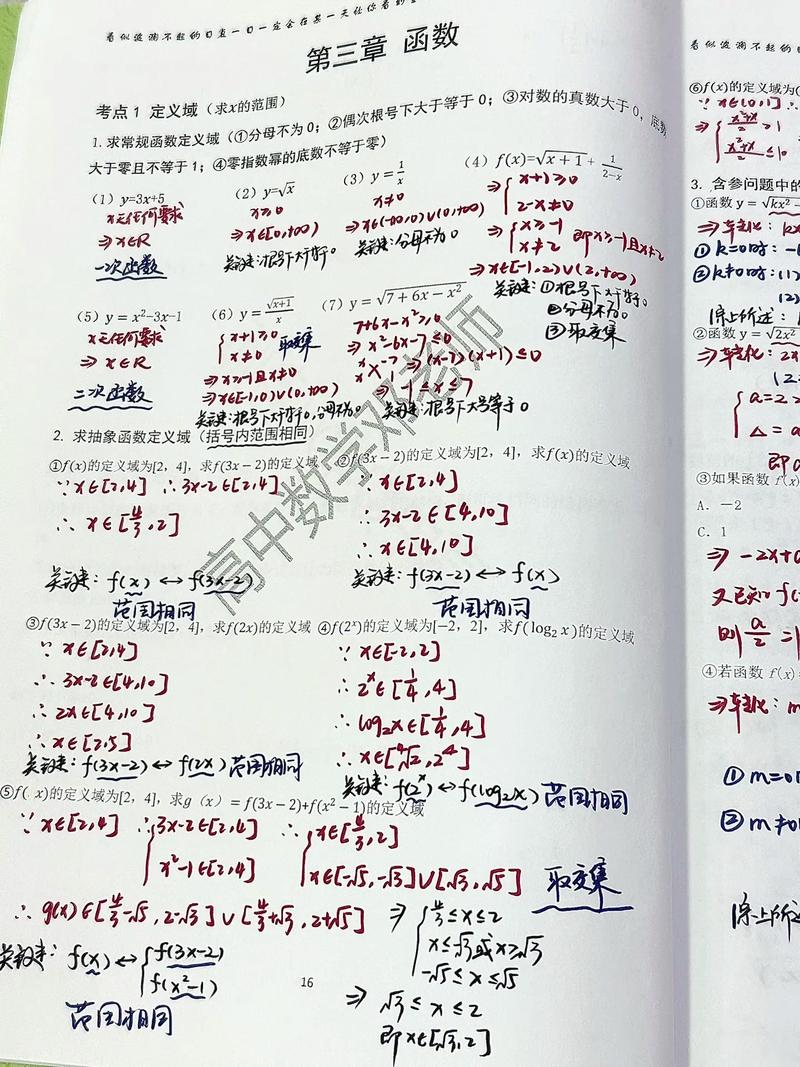 看似波澜不起的日复一日一定会在某一天让你看到
第三章 函数
考点1 定义域（求x的范围）
1. 求常规函数定义域（①分母不为0；②偶次根号下大于等于0；③对数的真数大于0，底数
大于零且不等于1；④零指数幂的底数不等于零）
（1）y=3x+5
x无任何要求
⇒ x∈R
一次函数
（2）y=√x
x≥0
⇒x∈[0,+∞)
关键点:根号下大于等于0。
（3）y = 1/x
x≠0
⇒x∈(-∞,0)∪(0,+∞)
关键点:分母不为0
（4）f(x)=√(x+1) + 1/(2-x)
⇒{x+1≥0
2-x≠0
⇒{x≥-1
x≠2 即x≥-1且x≠2
⇒x∈[-1,2)∪(2,+∞)
关键点:①根号下大于等于0。
②分母不为0。
③取交集
（5）y = x²-3x-1
x无任何要求
⇒ x∈R
二次函数
（6）y = √(x+1)/x
{x+1≥0
x≠0 取交集
⇒x≥-1且x≠0
⇒[-1,0)∪(0,+∞)
关键点:根号下大于等于0,分母不为0。
（7）y = √(7+6x-x²)
7+6x-x²≥0
⇒ x²-6x-7≤0
⇒(x-7)(x+1)≤0
⇒ -1≤x≤7
关键点:根号下大于等于0
2. 求抽象函数定义域（括号内范围相同）
①f(x)的定义域为[2，4]，求f(3x−2)的定义域
∵ x∈[2,4] ∴3x-2∈[2,4]
∴ x∈[4/3,2]
关键点: f(x) ↔ f(3x-2)
范围相同
②f(3x−2)的定义域为[2，4]，求f(x)的定义域
∵ x∈[2,4]
∴ 3x-2∈[4,10]
∴ x∈[4,10]
关键点: f(3x-2) ↔ f(x)
范围相同
③f(3x−2)的定义域为[2，4]，求f(2x)的定义域
∵ x∈[2,4]
∴ 3x-2∈[4,10]
∴ 2x∈[4,10]
∴ x∈[2,5]
关键点: f(3x-2) ↔ f(2x) 范围相同
④f(2ˣ)的定义域为[−2，2]，求f(log₂x)的定义域
∵ x∈[-2,2]
∴ 2ˣ∈[1/4,4]
∴ log₂x∈[1/4,4]
∴ x∈[⁴√2,2⁴]
关键点: f(2ˣ) ↔ f(log₂x) 范围相同
⑤f( x)的定义域为[2，4]，求g（x）= f(3x−2)+f(x²−1)的定义域
∵ x∈[2,4] ∴{3x-2∈[2,4] ∴{x∈[4/3,2]
x²-1∈[2,4] x∈[-√5,-√3]∪[√3,√5] 取交集
∴ g(x)∈[4/3-√5,2-√3]∪[4/3+√3,2+√5]
⇒{4/3≤x≤2
x≤-√3或x≥√3
-√5≤x≤√5
⇒ √3≤x≤2
即x∈[√3,2]
关键点: f(x)↔{f(3x-2)
f(x²-1)
范围相同
16
高中数学邓老师
看似波澜不起的日
⑥f(x)的定义域为(
∵ x∈(0,1] ∴
3. 含参问题中的
①函数 y = √(kx²−
⇒转化: kx
①k=0时: -
②k≠0时: (1)
(2)
综上所述:
②函数 y = √(2x²
⇒转化: 2x
a=2>
Δ = a
即 a
③如果函数 f(x)
A. −2
C. 1
⇒ -2x+a
又已知 f(
则 a/2 = 1
④若函数 f(x)
⇒转化:
① m=0时
② m≠0
综上所述